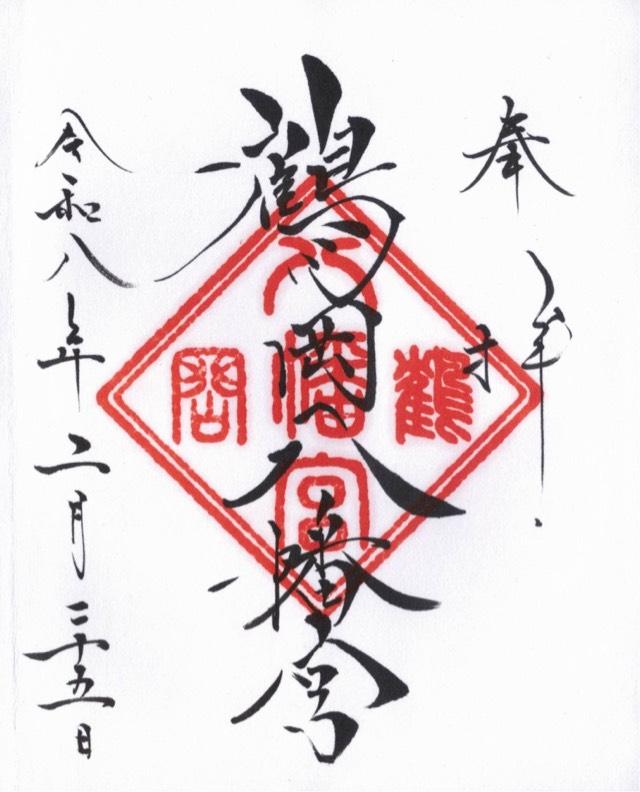 奉拝
鶴岡八幡宮
鶴
八幡宮
岡
令和八年二月二十五日